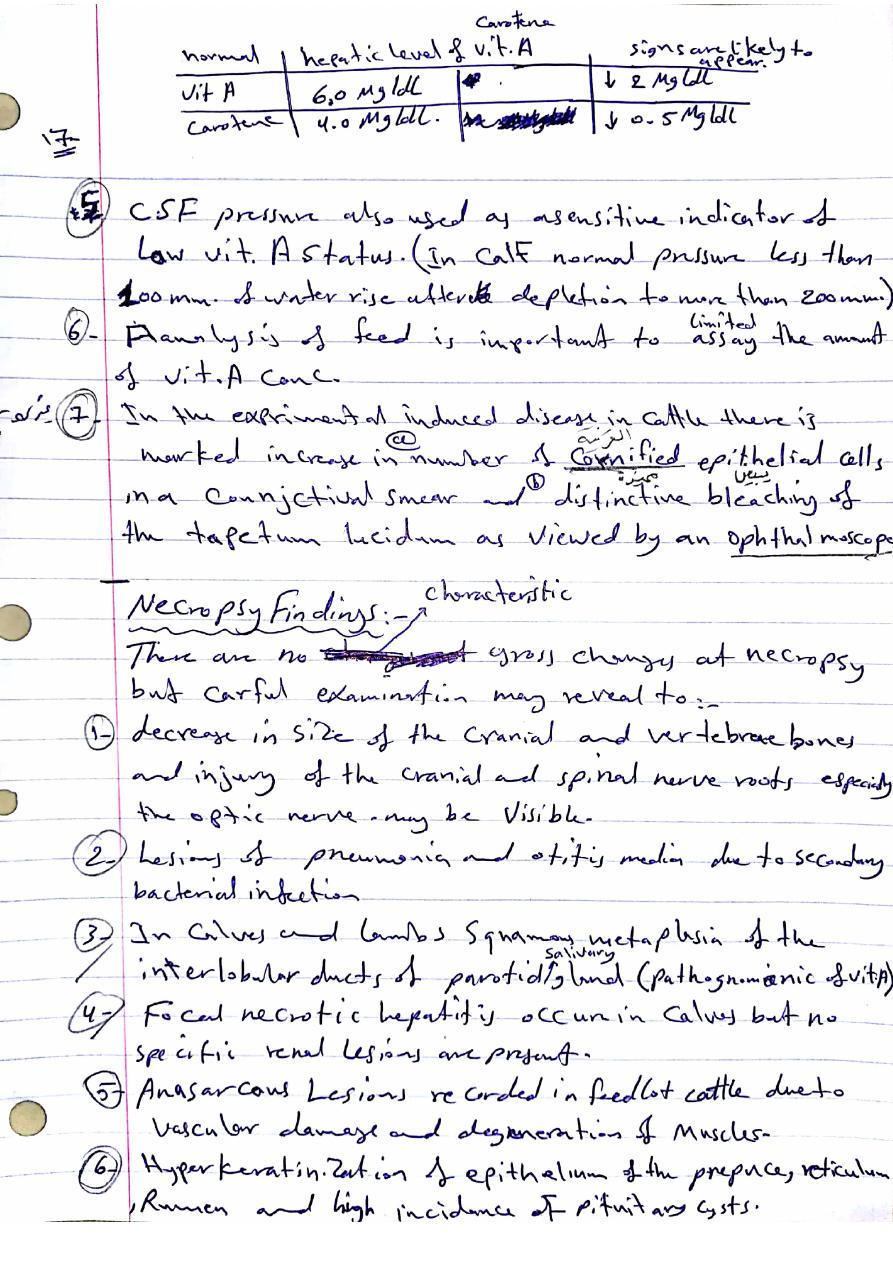 Carotene
normal | hepatic level of vit. A | signs are likely to appear.
Vit A | 6,0 Mg/dl | ↓ 2 Mg/dl
Carotene | 4.0 Mg/dl. | ↓ 0.5 Mg/dl
17
5 CSF pressure also used as asensitive indicator of
Low vit. A status. (In Calf normal pressure less than
100 mm. of water rise after depletion to more than 200 mm.)
6- analysis of feed is important to limited assay the amount
of vit. A conc.
7 In the exprimental induced disease in cattle there is
marked increase in (a) number of Cornified epithelial cells
in a Connjctival smear and (b) distinctive bleaching of
the tapetum lucidum as viewed by an ophthalmoscope
Necropsy Findings:- characteristic
There are no gross changes at necropsy
but carful examination may reveal to:-
1- decrease in size of the cranial and vertebrae bones
and injury of the cranial and spinal nerve roots especially
the optic nerve may be Visible.
2- Lesions of pneumonia and otitis media due to secondary
bacterial infection
3- In Calves and Lambs Squamous metaplasia of the
interlobular ducts of parotid salivary gland (pathognomonic of vit A)
4- Focal necrotic hepatitis occur in Calves but no
specific renal Lesions are present.
5- Anasarcous Lesions recorded in feedlot cattle due to
Vascular damage and degeneration of Muscles-
6- Hyperkeratinization of epithelium of the prepuce, reticulum
, Rumen and high incidence of pituitary cysts.